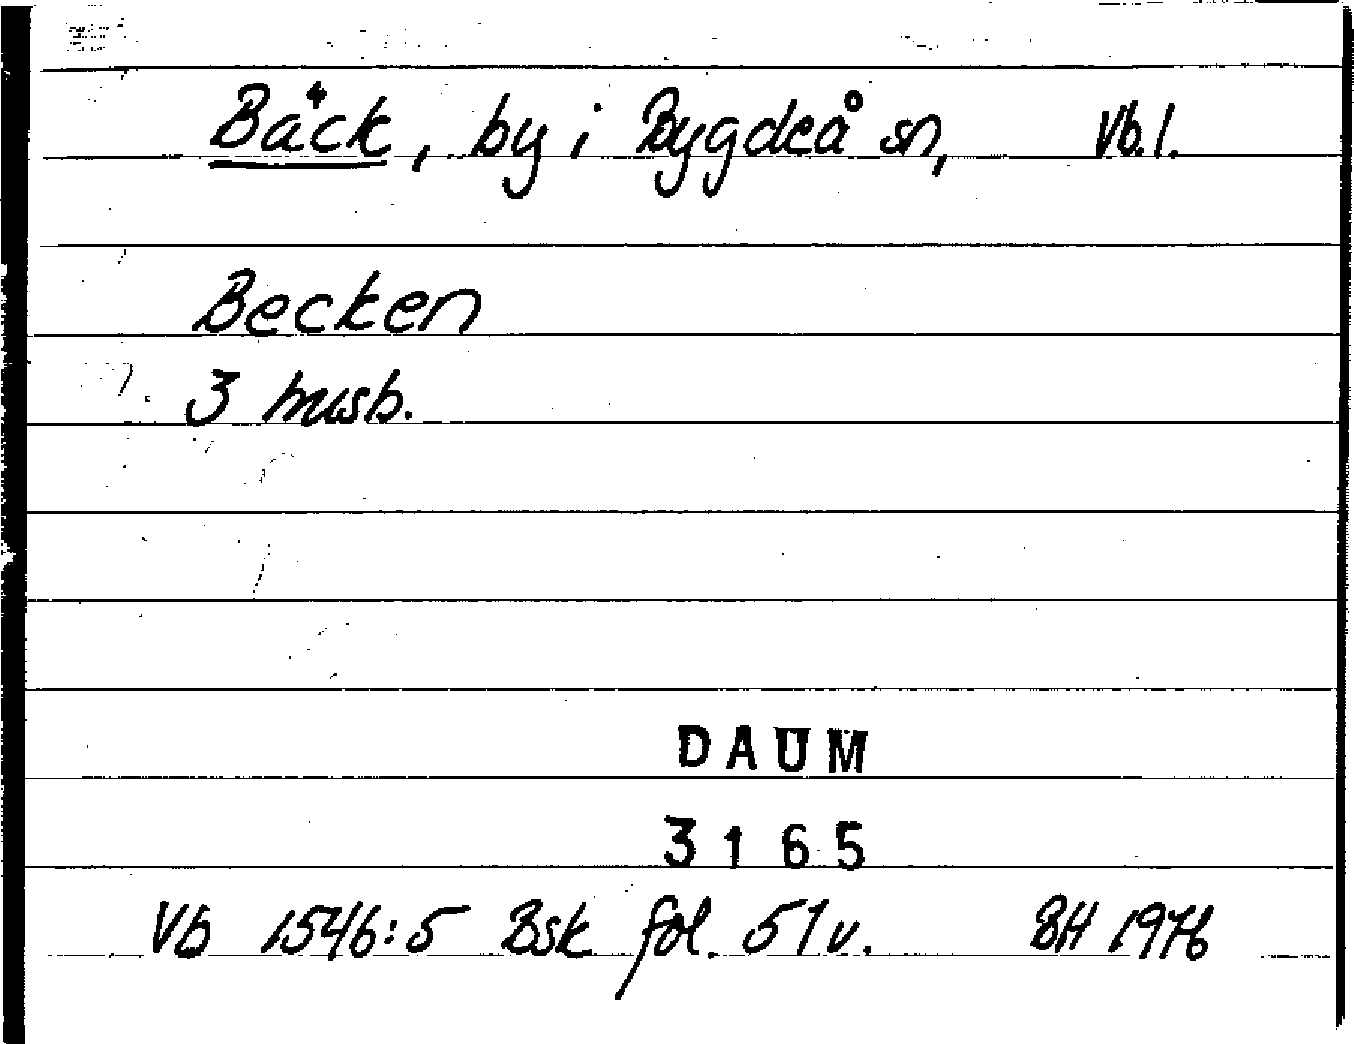 Bäck, by i Bygdeå sn, Vb. l.
Becken
3 husb.
DAUM
3165
Vb 1546:5 Bsk fol. 51v. BH 1976